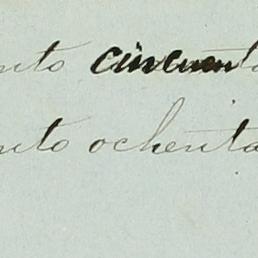 nto cincuenta
nto ochenta